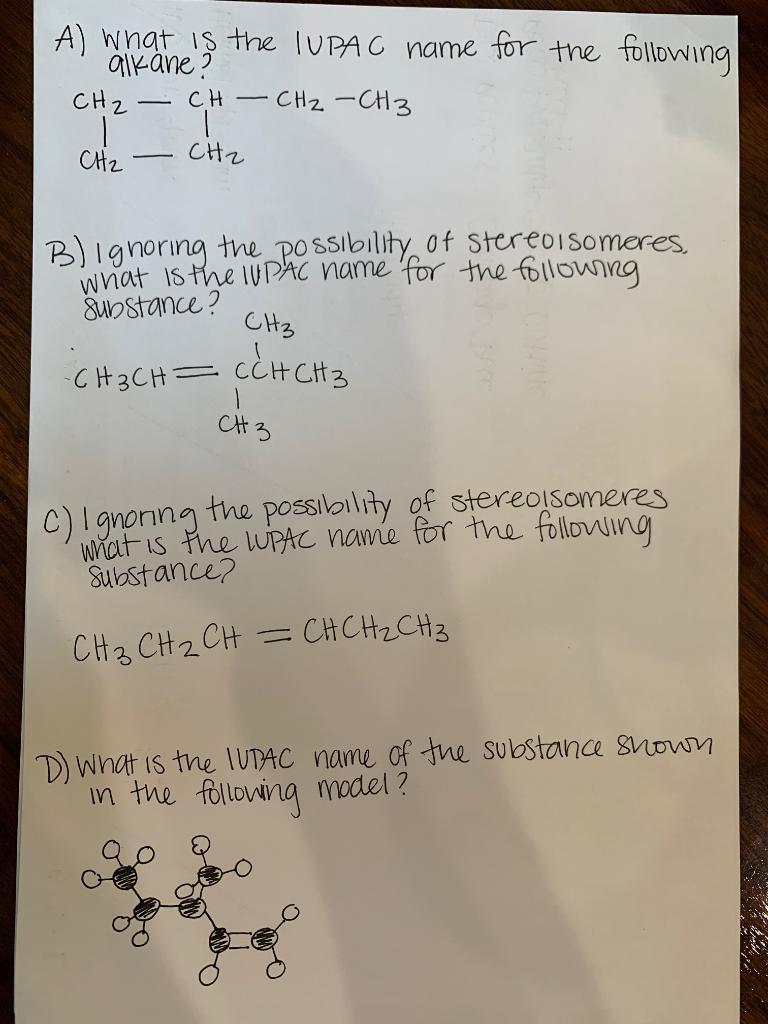 A) What is the IUPAC name for the following
alkane?
CH2 — CH — CH2 — CH3
| |
CH2 — CH2
B) Ignoring the possibility of stereoisomeres,
what is the IUPAC name for the following
substance?
CH3
|
CH3CH = CCHCH3
|
CH3
C) Ignoring the possibility of stereoisomeres
what is the IUPAC name for the following
substance?
CH3CH2CH = CHCH2CH3
D) What is the IUPAC name of the substance shown
in the following model?